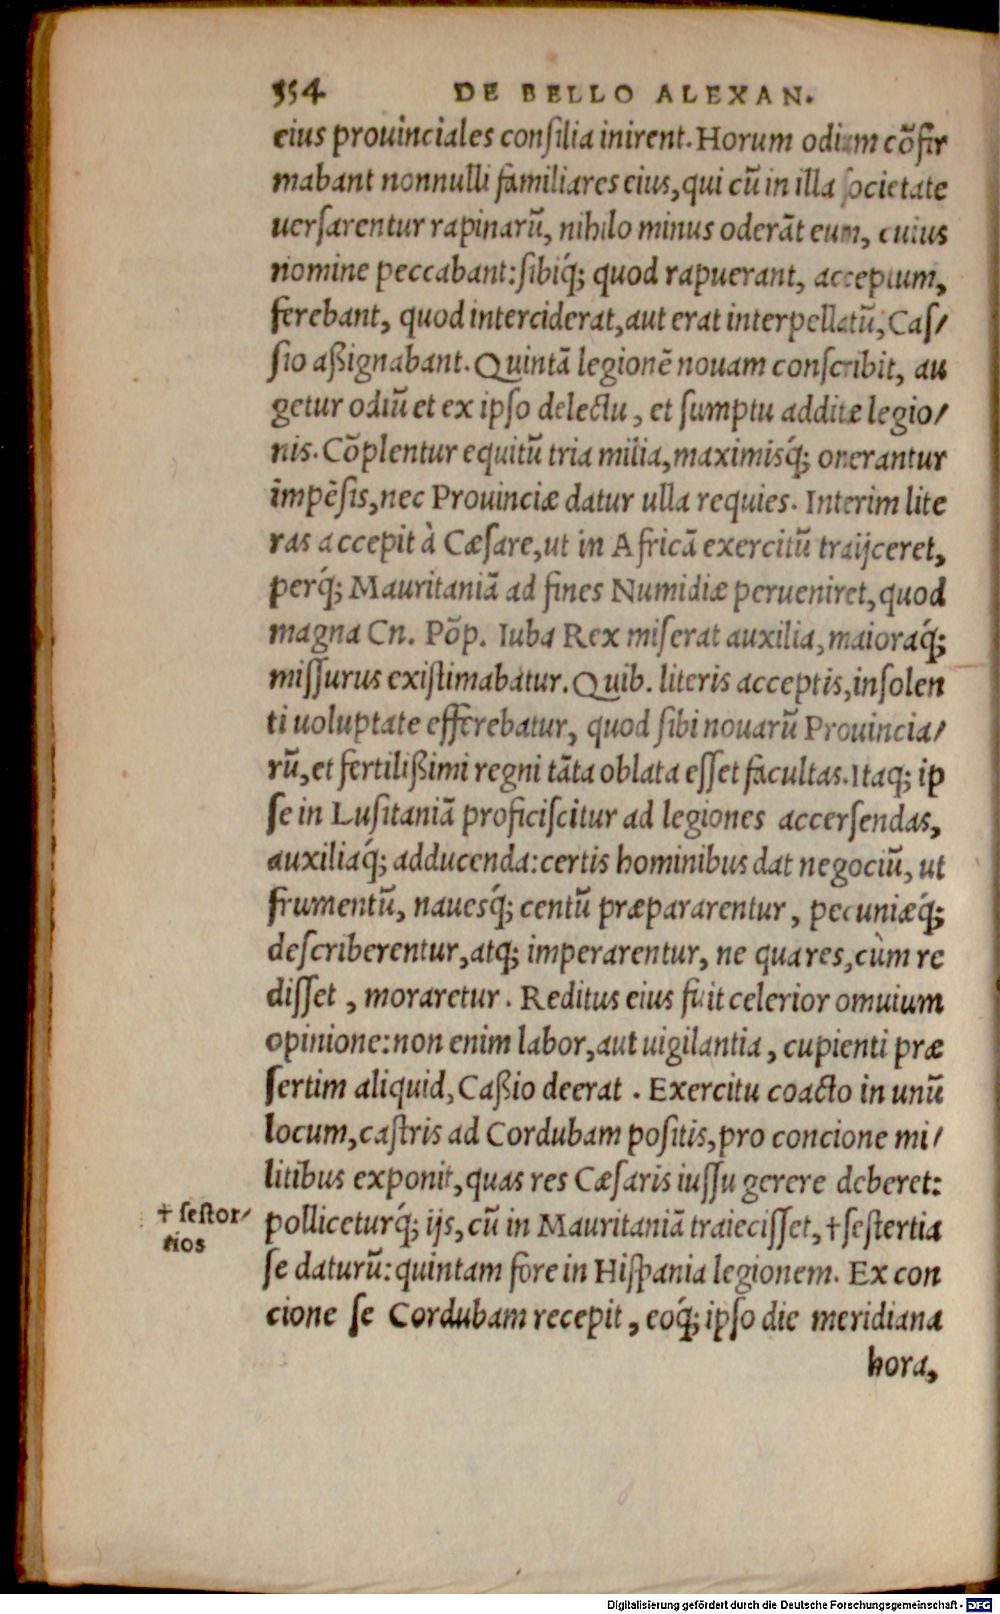 354 DE BELLO ALEXAN.
eius prouinciales consilia inirent. Horum odium cõfir
mabant nonnulli familiares eius, qui cũ in illa societate
uersarentur rapinarũ, nihilo minus oderãt eum, cuius
nomine peccabant: sibiq́; quod rapuerant, acceptum,
ferebant, quod interciderat, aut erat interpellatũ, Cas/
sio aßignabant. Quintã legionẽ nouam conscribit, au
getur odiũ et ex ipso delectu, et sumptu additæ legio/
nis. Cõplentur equitũ tria milia, maximisq́; onerantur
impẽsis, nec Prouinciæ datur ulla requies. Interim lite
ras accepit à Cæsare, ut in Africã exercitũ traijceret,
perq́; Mauritaniã ad fines Numidiæ perueniret, quod
magna Cn. Põp. Iuba Rex miserat auxilia, maioraq́;
missurus existimabatur. Quib. literis acceptis, insolen
ti uoluptate efferebatur, quod sibi nouarũ Prouincia/
rũ, et fertilißimi regni tãta oblata esset facultas. Itaq; ip
se in Lusitaniã proficiscitur ad legiones accersendas,
auxiliaq́; adducenda: certis hominibus dat negociũ, ut
frumentũ, nauesq́; centũ præpararentur, pecuniæq́;
describerentur, atq; imperarentur, ne qua res, cùm re
disset, moraretur. Reditus eius fuit celerior omuium
opinione: non enim labor, aut uigilantia, cupienti præ
sertim aliquid, Caßio deerat. Exercitu coacto in unũ
locum, castris ad Cordubam positis, pro concione mi/
litibus exponit, quas res Cæsaris iussu gerere deberet:
† sestor/
tios
polliceturq́; ijs, cũ in Mauritaniã traiecisset, † sestertia
se daturũ: quintam fore in Hispania legionem. Ex con
cione se Cordubam recepit, eoq́; ipso die meridiana
hora,
Digitalisierung gefördert durch die Deutsche Forschungsgemeinschaft - DFG